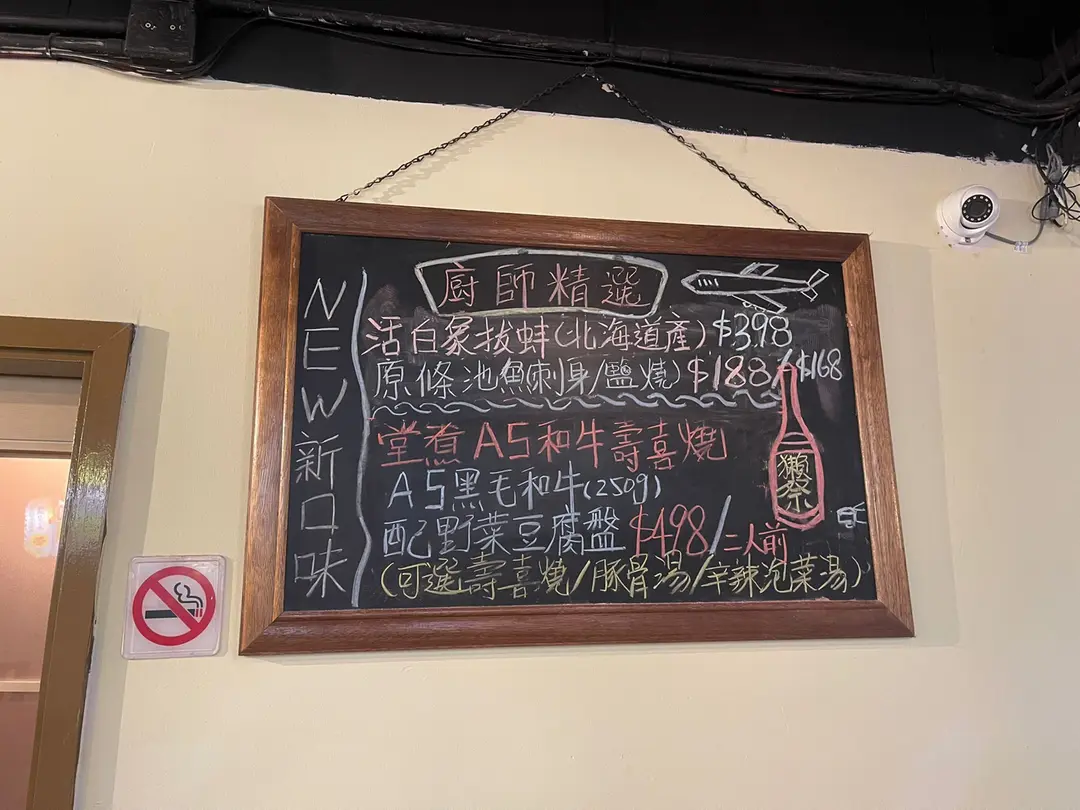 NEW新口味
廚師精選
活白象拔蚌(北海道產)$398
原條池魚刺身/鹽燒)$188/$168
堂煮A5和牛壽喜燒
A5黑毛和牛(250g)
配野菜豆腐盤$498/二人前
(可選壽喜燒/豚骨湯/辛辣泡菜湯)
獺祭